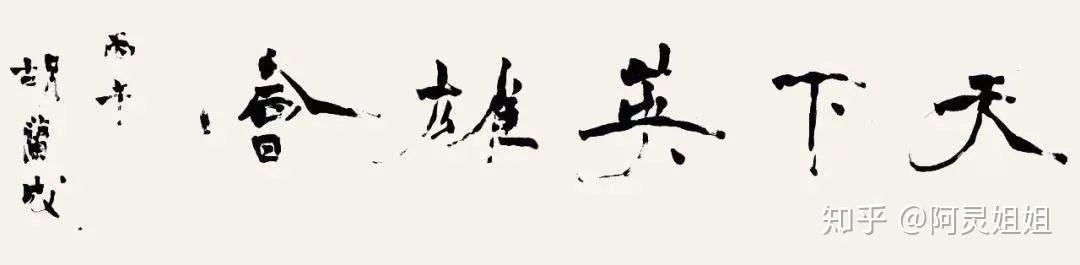 天下英雄會
胡蘭成
知乎 @阿灵姐姐